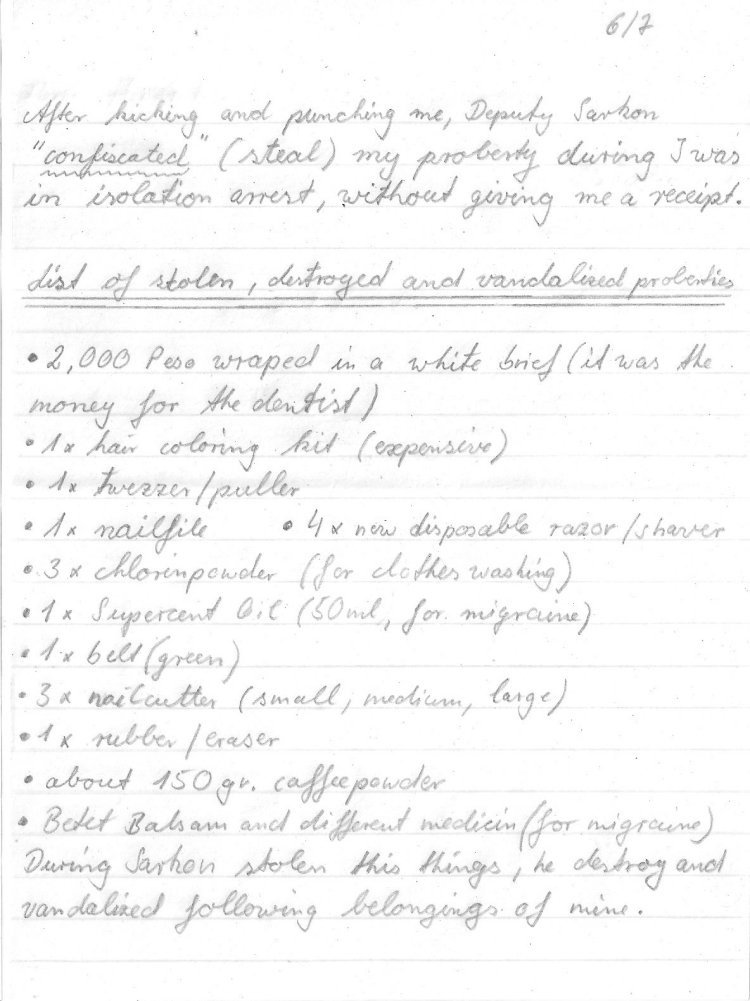 6/7
After kicking and punching me, Deputy Sarkon
"confiscated" (steal) my proberty during I was
in isolation arrest, without giving me a receipt.
List of stolen, destroyed and vandalized proberties
• 2,000 Peso wraped in a white brief (it was the
money for the dentist)
• 1x hair coloring kit (expensive)
• 1x twezzer/puller
• 1x nailfile • 4x new disposable razor/shaver
• 3x chlorinpowder (for clothes washing)
• 1x Supercent Oil (50ml, for migraine)
• 1x belt (green)
• 3x nailcutter (small, medium, large)
• 1x rubber/eraser
• about 150 gr. caffeepowder
• Betet Balsam and different medicin (for migraine)
During Sarkon stolen this things, he destroy and
vandalized following belongings of mine.